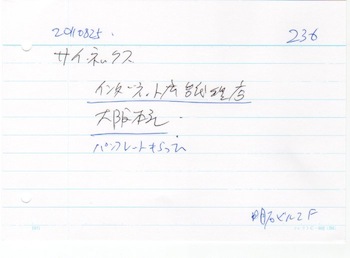 20110825. 236
サイネックス
インターネット広告代理店
大阪本社.
パンフレットもらってい
明石ビル2F